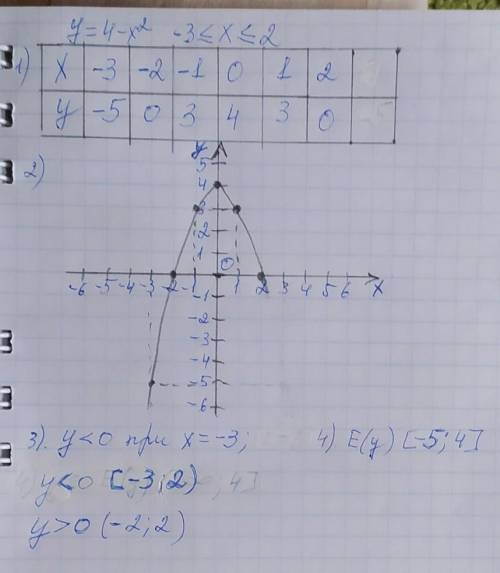 y=4-x² -3≤x≤2
1) x -3 -2 -1 0 1 2
y -5 0 3 4 3 0
2)
y
5
4
3
2
1
0
-6 -5 -4 -3 -2 -1 1 2 3 4 5 6 x
-1
-2
-3
-4
-5
-6
3). y<0 при x=-3; 4) E(y) [-5;4]
y<0 [-3;2)
y>0 (-2;2)